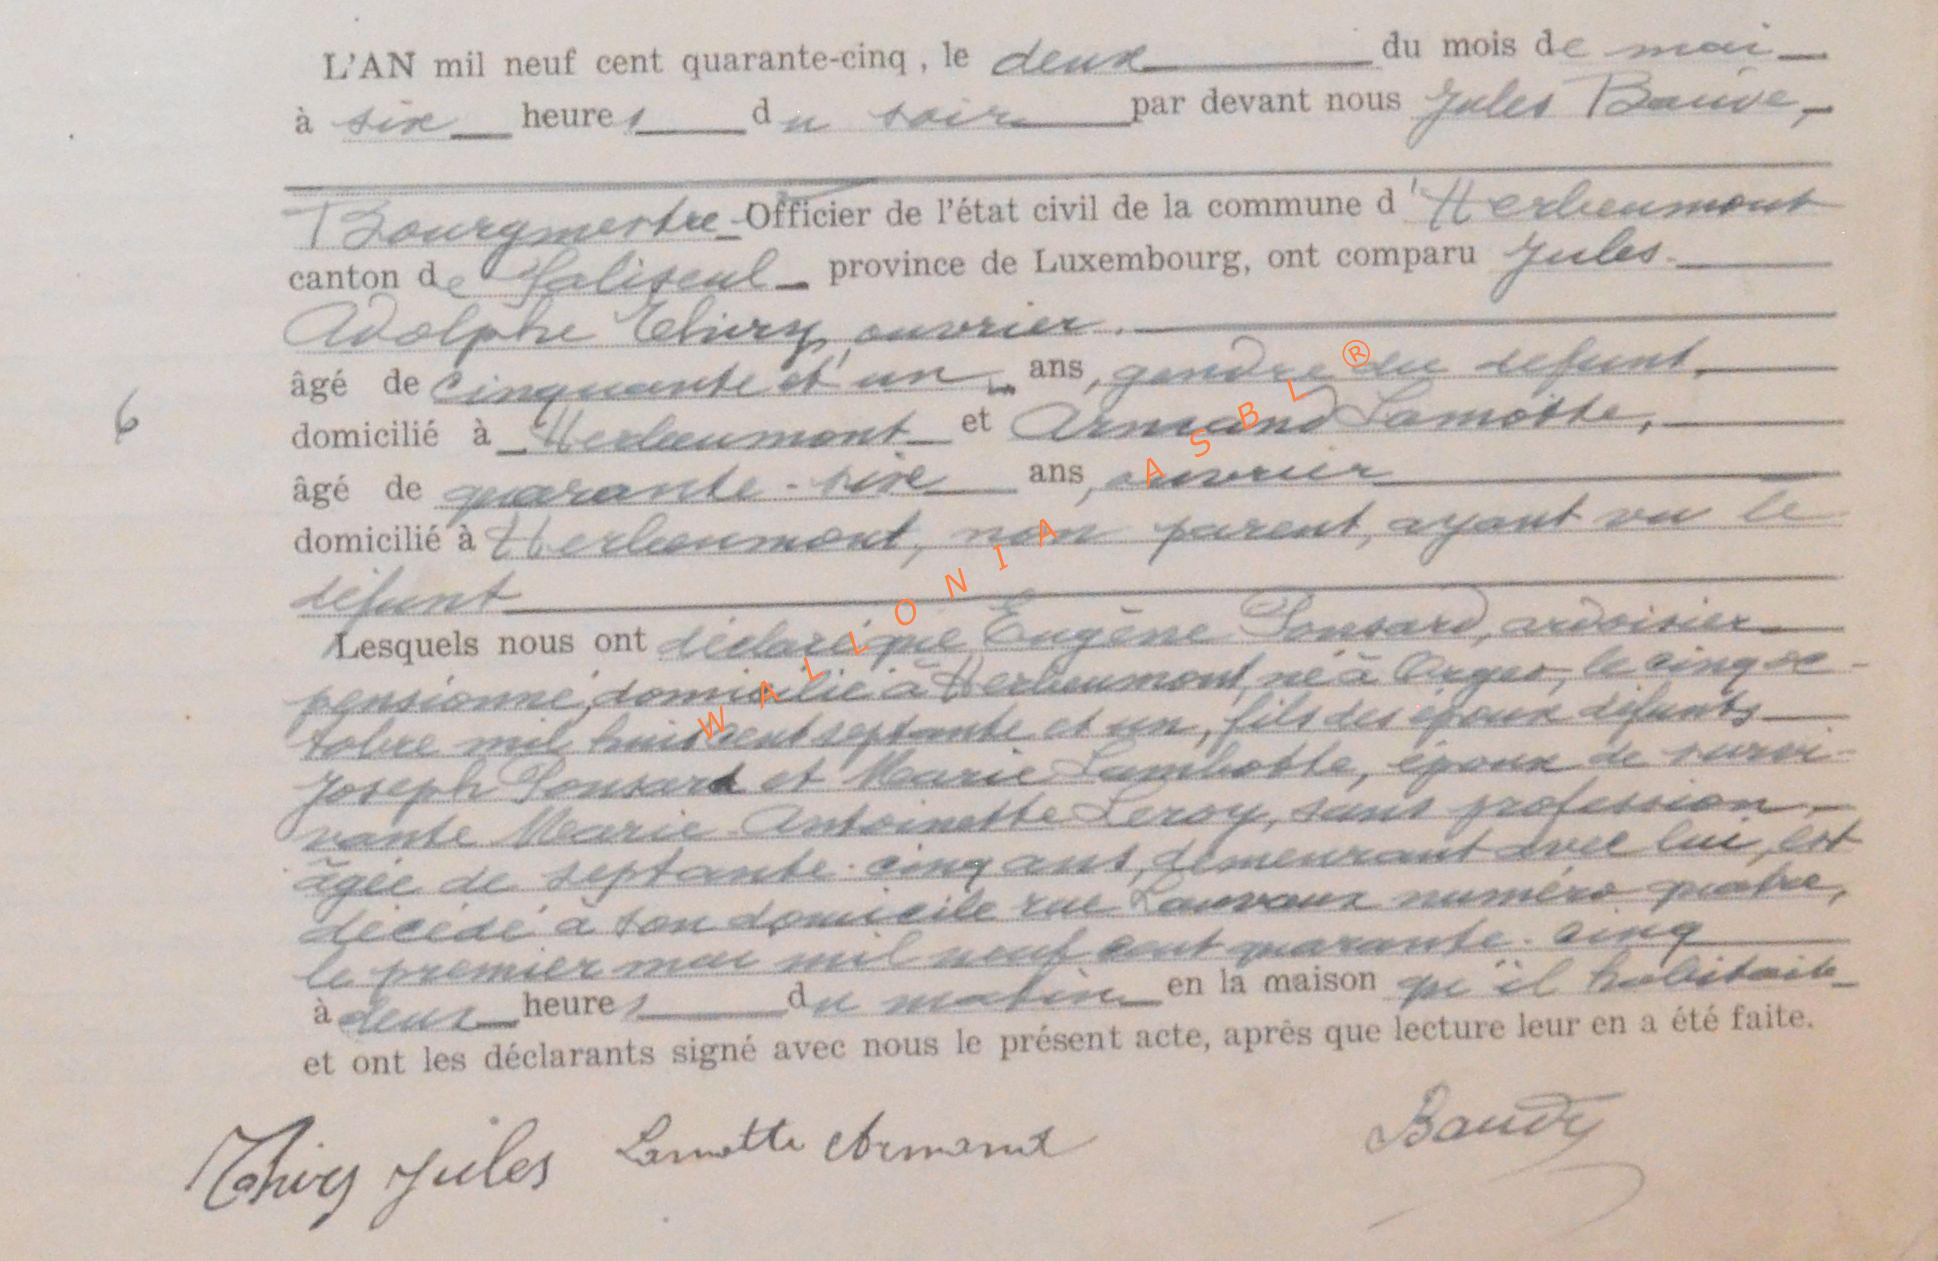 L'AN mil neuf cent quarante-cinq, le deux du mois de mai
à six heures du soir par devant nous Jules
Bourgmestre Officier de l'état civil de la commune d'Herbeumont
canton de Paliseul province de Luxembourg, ont comparu Jules
Adolphe Thiry, ouvrier.
âgé de cinquante et un ans, gendre du défunt,
6
domicilié à Herbeumont et Armand Lamotte,
âgé de quarante-six ans, ouvrier
domicilié à Herbeumont, non parent, ayant vu le
défunt
Lesquels nous ont déclaré que Eugène Ponsard, ardoisier
pensionné, domicilié à Herbeumont, né à Orgeo, le cinq oc-
tobre mil huit cent septante et un, fils des époux défunts
Joseph Ponsard et Marie Lambotte, époux de survi-
vante Marie Antoinette Leroy, sans profession,
âgée de septante-cinq ans, demeurant avec lui, est
décédé à son domicile rue Lauvaux numéro quatre,
le premier mai mil neuf cent quarante-cinq
à deux heures du matin en la maison qu'il habitait
et ont les déclarants signé avec nous le présent acte, après que lecture leur en a été faite.
Thiry Jules Lamotte Armand
WALLONIA ASBL ®